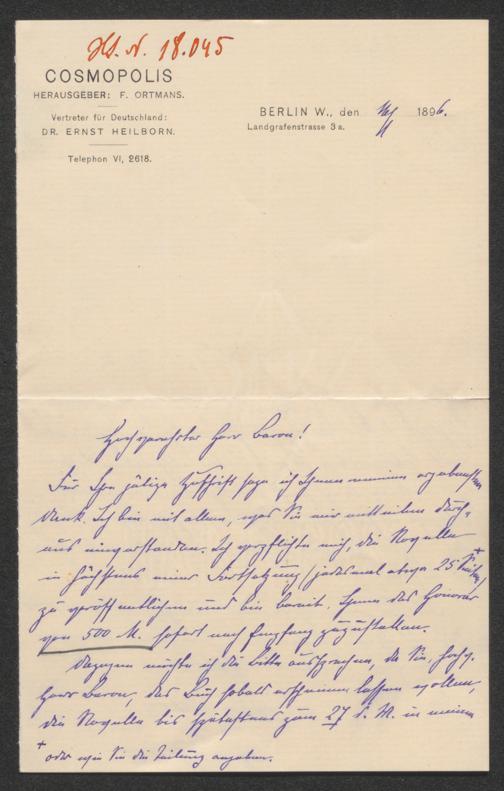 Hs. N. 18.045
COSMOPOLIS
HERAUSGEBER: F. ORTMANS.
Vertreter für Deutschland:
DR. ERNST HEILBORN.
Telephon VI, 2618.
BERLIN W., den 1896.
Landgrafenstrasse 3a.
Hochverehrter Herr Baron!
Für Ihre gütige Zuschrift sage ich Ihnen meinen ergebensten
Dank. Ich bin mit allem, was Sie mir mitteilen durch-
aus einverstanden. Ich verpflichte mich, die Novelle
in höchstens einer Fortsetzung (jedesmal etwa 25 Seiten)+
zu veröffentlichen und bin bereit, Ihnen das Honorar
von 500 M. sofort nach Empfang zuzustellen.
Dagegen möchte ich die Bitte aussprechen, da Sie, hochv.
Herr Baron, das Buch sobald erscheinen lassen wollen,
die Novelle bis spätestens zum 27 d. M. in meinen
+ oder wie Sie die Teilung angeben.